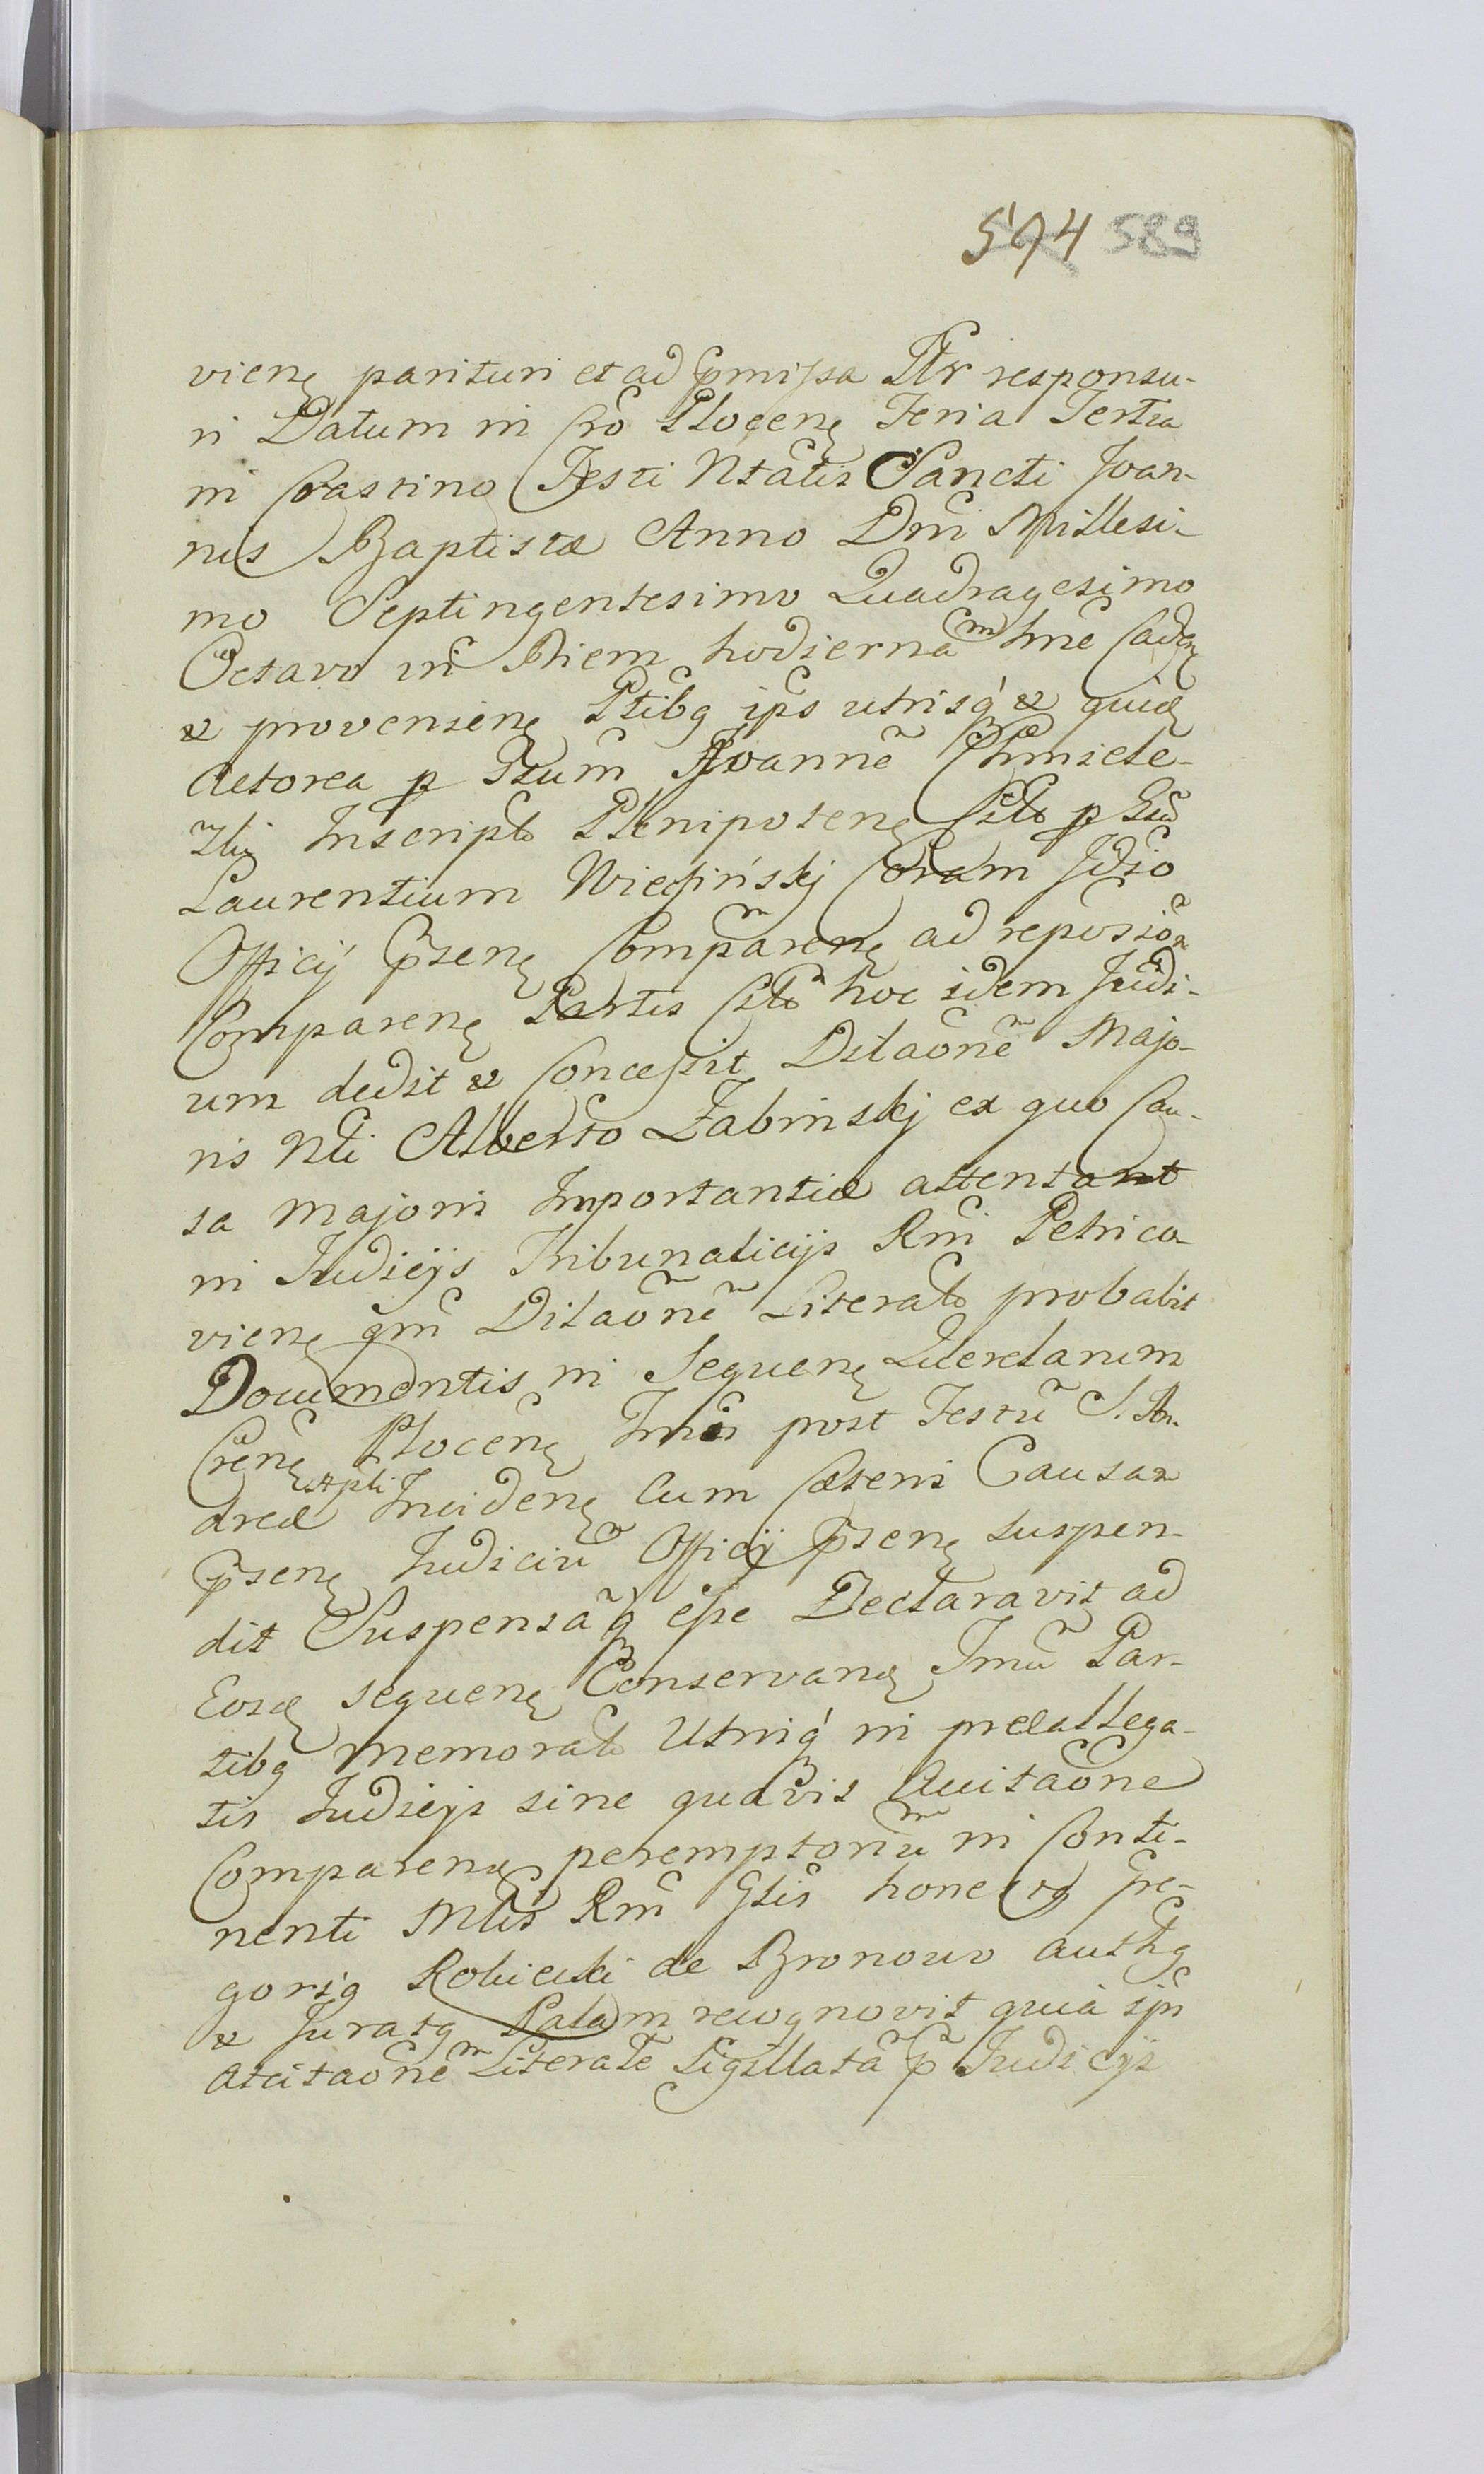 594 589
vienę parituri et ad p̃missa Ptr responsu-
ri Datum in Cro Plocenę Feria Tertia
in Crastino Festi Ntãtis Sancti Joan-
nis Baptistæ Anno Dni Millesi-
mo Septingentesimo Quadragesimo
Octavo in Diem hodiernã
& provenienę Ptibg ips utrisq́ & quidę
Actorea p Joannẽ Chmiele-
Inscripto Plenipotenę p
Laurentium Wiechiński Coram Jdio
Officij p̃senę Comparenę ad
Comparenę Partis hoc idem Judi-
um dedit & Concessit Dilaõnẽ Majo-
ris Nli Alberto Żabinskj ex quo Cau-
sa majoris Importantiæ attentant
in Judicijs Tribunalicijs Rni Petrico-
vienę qm̃ Dilaõnẽ Literato probabit
Documentis in Sequenę Querelarum
Plocenę Tmis post Festũ S. An-
dreæ Apli Incidenę Cum Cæteris Causar
p̃senę Judiciũ Officij p̃senę suspen-
dit Suspensãq esse Declaravit ad
Eosdę sequenę Conservanę Tmũ Par-
tibg memorato Utrisq́ in preallega-
tis Judicijs sine quavis
Comparenę peremptoriũ in Conti-
nenti Mtis Rni Glis honestg Gre-
gorig Robiecki de Bronowo authg
& Juratg Palam recognovit quia ipi
Atcitaõnẽ Literatẽ Sigillatã p̃ Judicijs